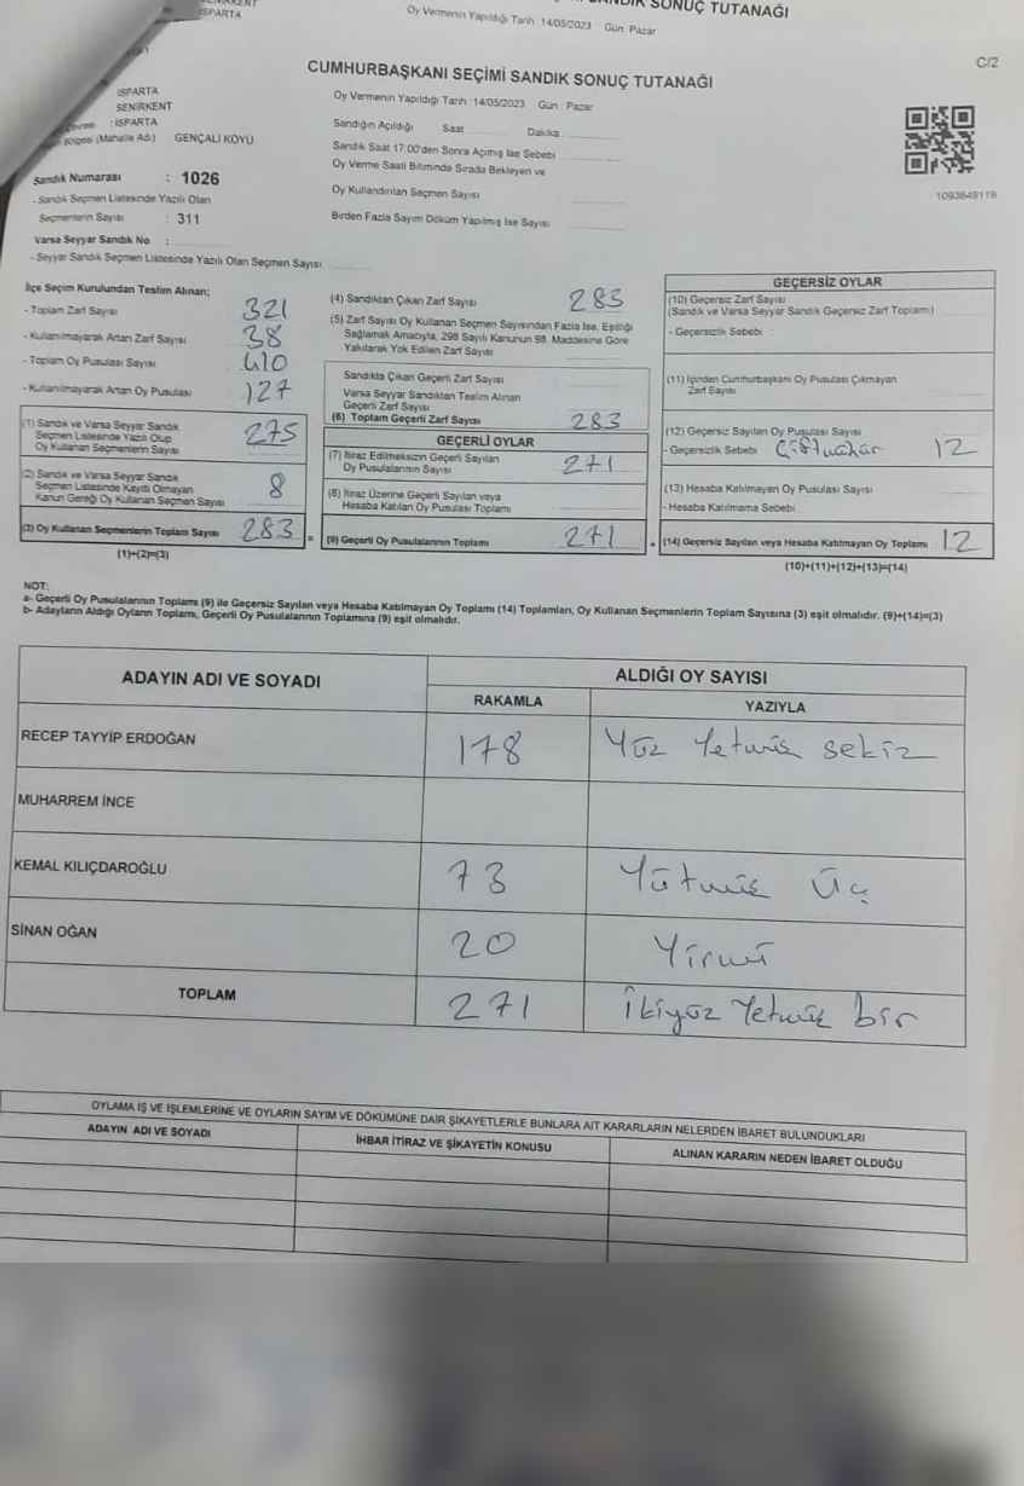 SANDIK SONUÇ TUTANAĞI
ISPARTA
Oy Vermenin Yapıldığı Tarih :14/05/2023 Gün: Pazar
C/2
CUMHURBAŞKANI SEÇİMİ SANDIK SONUÇ TUTANAĞI
Oy Vermenin Yapıldığı Tarih :14/05/2023 Gün : Pazar
ISPARTA
SENİRKENT
: ISPARTA
(Mahalle Adı) GENÇALİ KÖYÜ
Sandığın Açıldığı Saat Dakika
Sandık Saat 17:00'den Sonra Açılmış İse Sebebi
Oy Verme Saati Bitiminde Sırada Bekleyen ve
Oy Kullandırılan Seçmen Sayısı
Birden Fazla Sayım Döküm Yapılmış İse Sayısı
1093649119
Sandık Numarası : 1026
- Sandık Seçmen Listesinde Yazılı Olan
Seçmenlerin Sayısı : 311
Varsa Seyyar Sandık No :
- Seyyar Sandık Seçmen Listesinde Yazılı Olan Seçmen Sayısı
İlçe Seçim Kurulundan Teslim Alınan;
- Toplam Zarf Sayısı 321
- Kullanılmayarak Artan Zarf Sayısı 38
- Toplam Oy Pusulası Sayısı 410
- Kullanılmayarak Artan Oy Pusulası 127
(1) Sandık ve Varsa Seyyar Sandık
Seçmen Listesinde Yazılı Olup
Oy Kullanan Seçmenlerin Sayısı 275
(2) Sandık ve Varsa Seyyar Sandık
Seçmen Listesinde Kayıtlı Olmayan
Kanun Gereği Oy Kullanan Seçmen Sayısı 8
(3) Oy Kullanan Seçmenlerin Toplam Sayısı 283 =
(1)+(2)=(3)
(4) Sandıktan Çıkan Zarf Sayısı 283
(5) Zarf Sayısı Oy Kullanan Seçmen Sayısından Fazla İse, Eşitliği
Sağlamak Amacıyla, 298 Sayılı Kanunun 98. Maddesine Göre
Yakılarak Yok Edilen Zarf Sayısı
Sandıkta Çıkan Geçerli Zarf Sayısı
Varsa Seyyar Sandıktan Teslim Alınan
Geçerli Zarf Sayısı
(6) Toplam Geçerli Zarf Sayısı 283
GEÇERLİ OYLAR
(7) İtiraz Edilmeksizin Geçerli Sayılan
Oy Pusulalarının Sayısı 271
(8) İtiraz Üzerine Geçerli Sayılan veya
Hesaba Katılan Oy Pusulası Toplamı
(9) Geçerli Oy Pusulalarının Toplamı 271
GEÇERSİZ OYLAR
(10) Geçersiz Zarf Sayısı
(Sandık ve Varsa Seyyar Sandık Geçersiz Zarf Toplamı)
- Geçersizlik Sebebi :
(11) İçinden Cumhurbaşkanı Oy Pusulası Çıkmayan
Zarf Sayısı
(12) Geçersiz Sayılan Oy Pusulası Sayısı
- Geçersizlik Sebebi 12
(13) Hesaba Katılmayan Oy Pusulası Sayısı
- Hesaba Katılmama Sebebi
(14) Geçersiz Sayılan veya Hesaba Katılmayan Oy Toplamı 12
(10)+(11)+(12)+(13)=(14)
NOT:
a- Geçerli Oy Pusulalarının Toplamı (9) ile Geçersiz Sayılan veya Hesaba Katılmayan Oy Toplamı (14) Toplamları, Oy Kullanan Seçmenlerin Toplam Sayısına (3) eşit olmalıdır. (9)+(14)=(3)
b- Adayların Aldığı Oyların Toplamı, Geçerli Oy Pusulalarının Toplamına (9) eşit olmalıdır.
ADAYIN ADI VE SOYADI
ALDIĞI OY SAYISI
RAKAMLA YAZIYLA
RECEP TAYYİP ERDOĞAN 178 Yüz Yetmiş sekiz
MUHARREM İNCE
KEMAL KILIÇDAROĞLU 73 Yetmiş Üç
SİNAN OĞAN 20 Yirmi
TOPLAM 271 İkiyüz Yetmiş bir
OYLAMA İŞ VE İŞLEMLERİNE VE OYLARIN SAYIM VE DÖKÜMÜNE DAİR ŞİKAYETLERLE BUNLARA AİT KARARLARIN NELERDEN İBARET BULUNDUKLARI
ADAYIN ADI VE SOYADI İHBAR İTİRAZ VE ŞİKAYETİN KONUSU ALINAN KARARIN NEDEN İBARET OLDUĞU